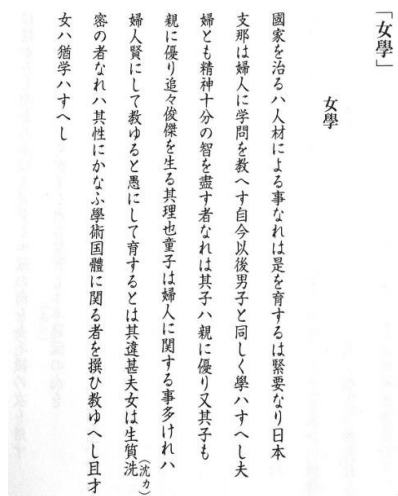 「女學」
女學
國家を治るハ人材による事なれは是を育するは緊要なり日本
支那は婦人に学問を教へす自今以後男子と同しく學ハすへし夫
婦とも精神十分の智を盡す者なれは其子ハ親に優り又其子も
親に優り追々俊傑を生る其理也童子は婦人に関する事多けれハ
婦人賢にして教ゆると愚にして育するとは其違甚夫女は生質洗
(沈カ)
密の者なれハ其性にかなふ學術国體に関る者を撰ひ教ゆへし且才
女ハ猶学ハすへし